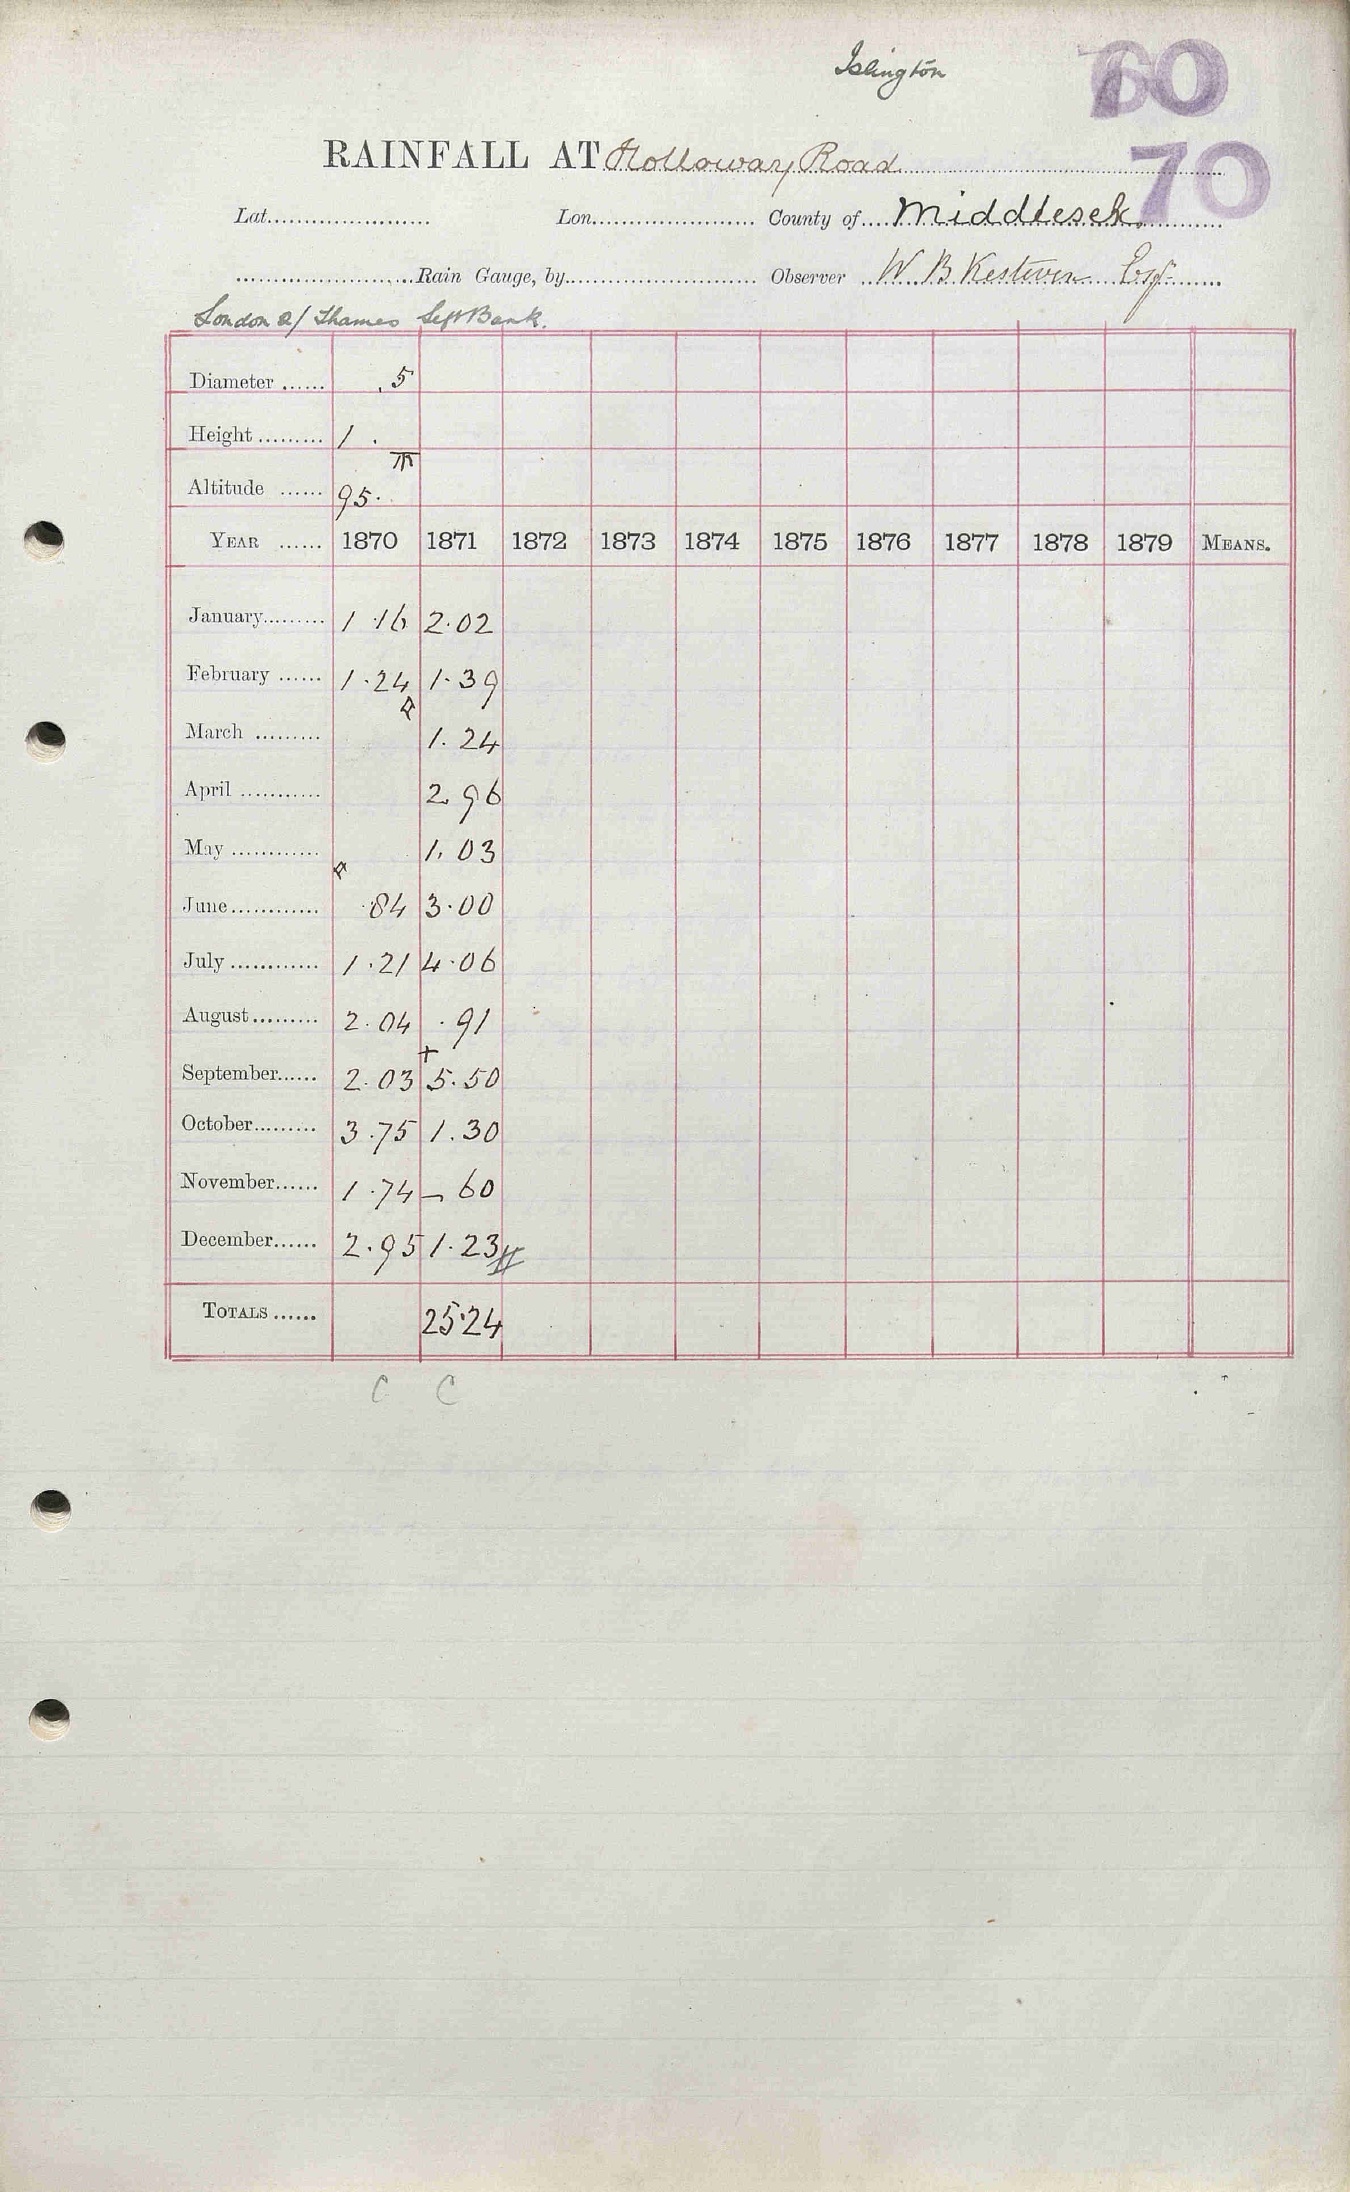 Islington
70
RAINFALL AT Holloway Road
70
Lat. Lon. County of Middlesex.
Rain Gauge, by Observer W. B. Kesteven Esqr.
London a/ Thames Left Bank.
Diameter ...... .5
Height ......... 1 .
TR
Altitude ...... 95.
YEAR ...... 1870 1871 1872 1873 1874 1875 1876 1877 1878 1879 MEANS.
January......... 1.16 2.02
February ...... 1.24 1.39
March ......... 1.24
April ........... 2.96
May ............ 1.03
June ............ .84 3.00
July ............ 1.21 4.06
August ......... 2.04 .91
+
September ...... 2.03 5.50
October ......... 3.75 1.30
November ...... 1.74 – 60
December ...... 2.95 1.23
TOTALS ...... 25.24
C C